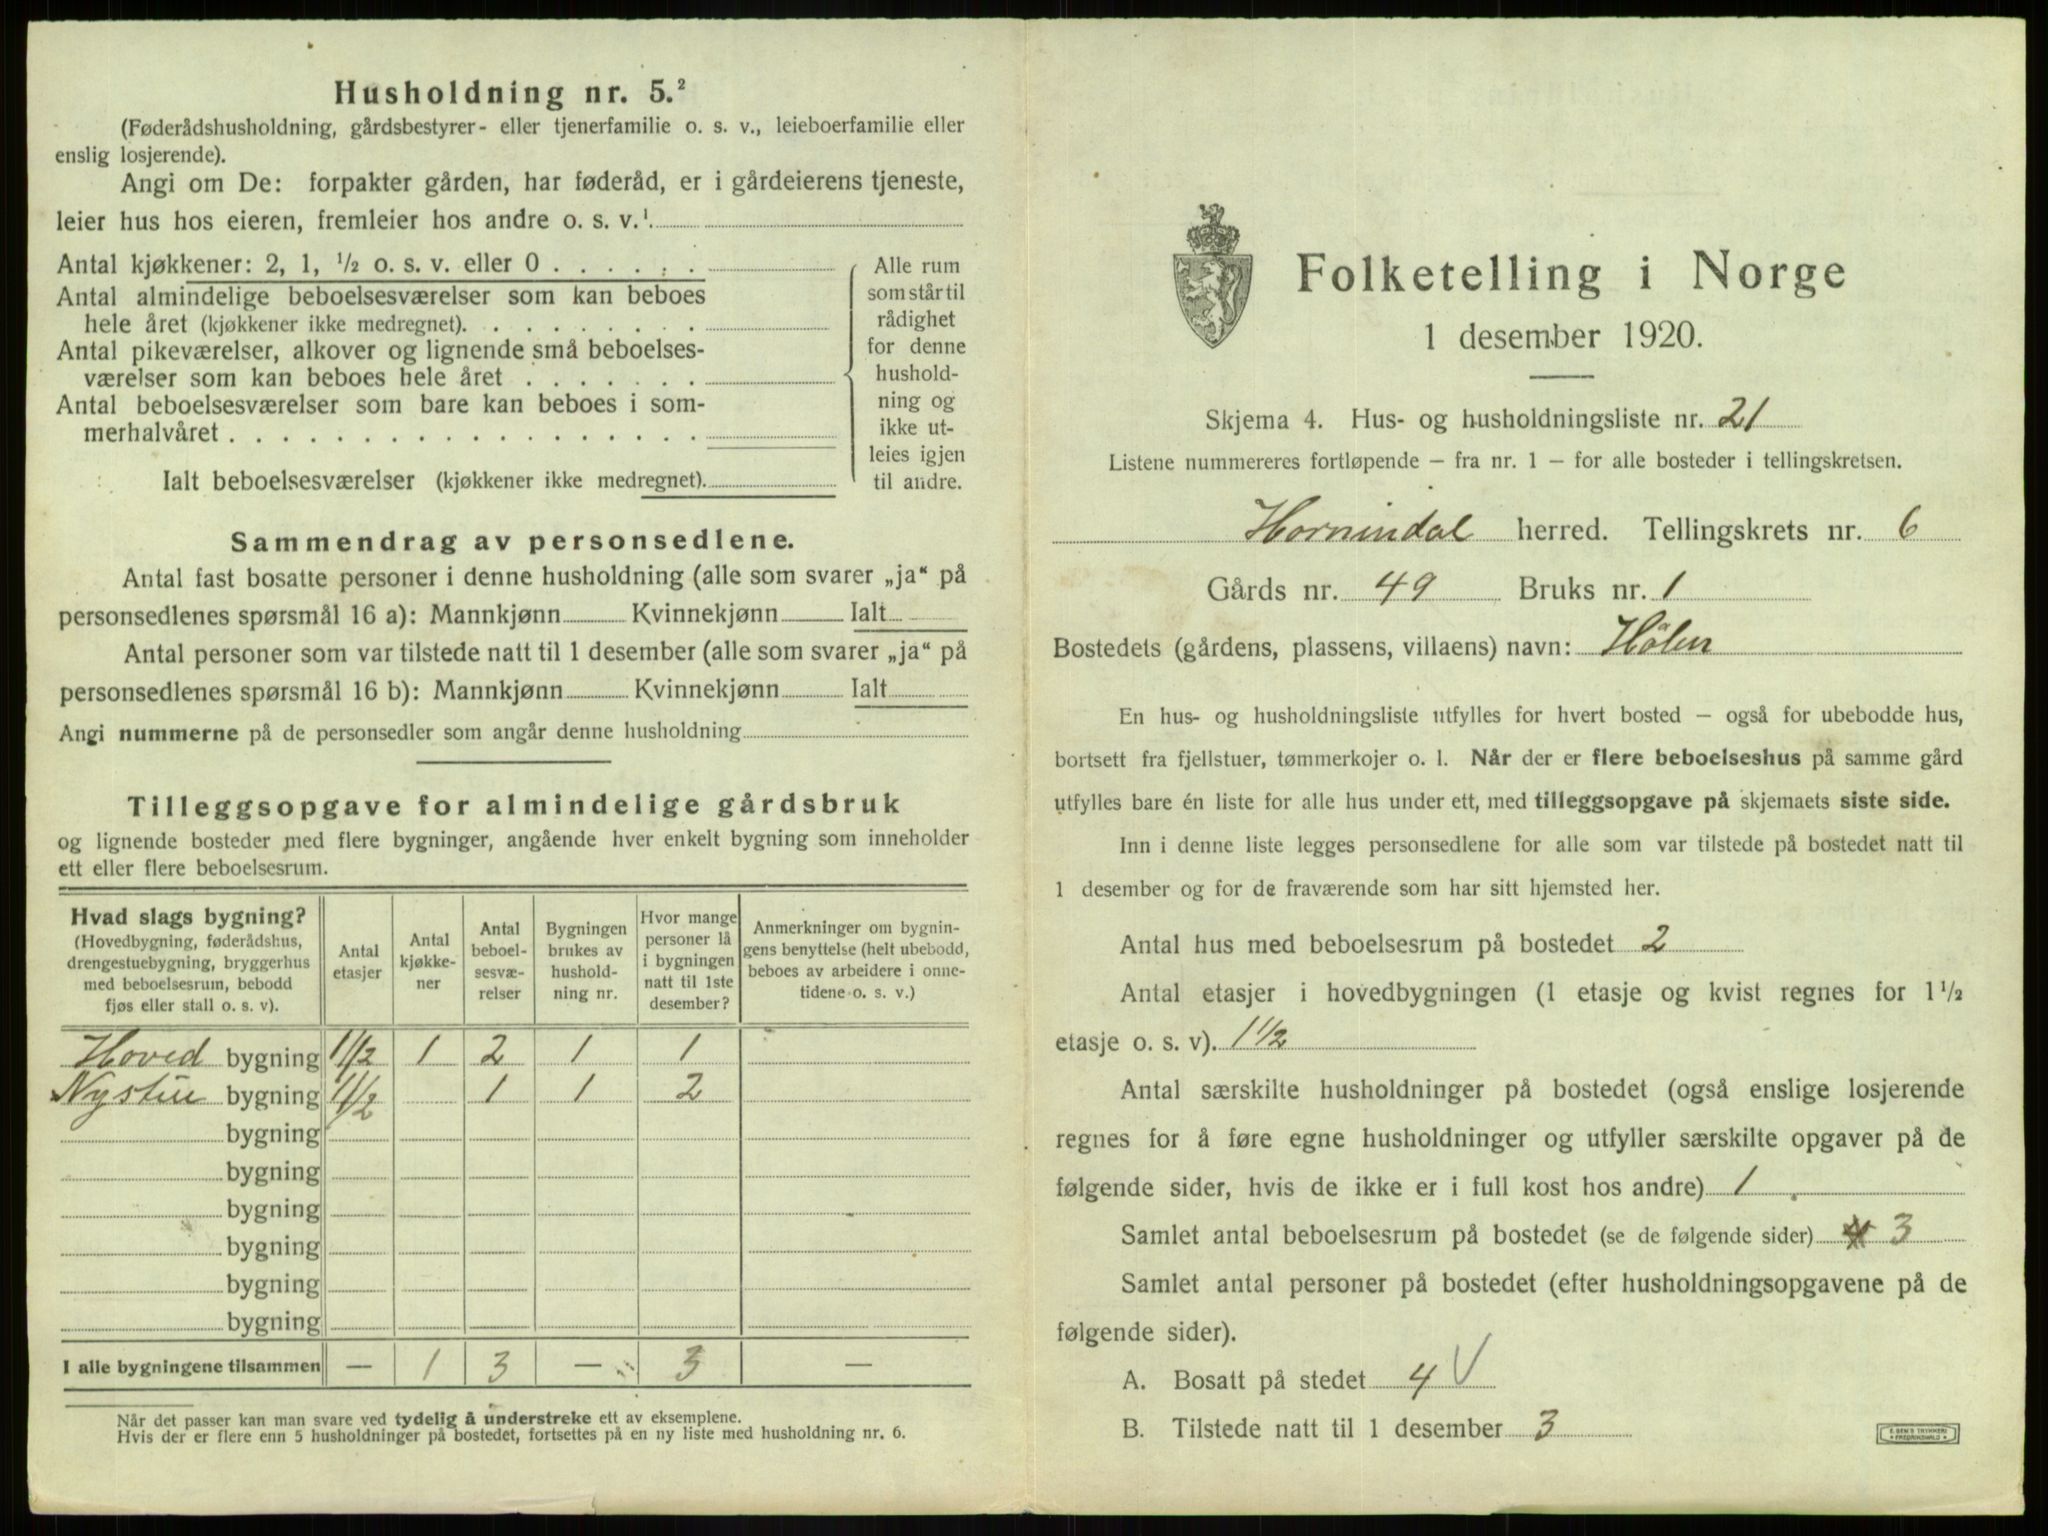 Husholdning nr. 5.²
(Føderådshusholdning, gårdsbestyrer- eller tjenerfamilie o. s. v., leieboerfamilie eller
enslig losjerende).
Angi om De: forpakter gården, har føderåd, er i gårdeierens tjeneste,
leier hus hos eieren, fremleier hos andre o. s. v.¹
Antal kjøkkener: 2, 1, ½ o. s. v. eller 0 . . . . . .
Antal almindelige beboelsesværelser som kan beboes
hele året (kjøkkener ikke medregnet). . . . . . . . .
Antal pikeværelser, alkover og lignende små beboelses-
værelser som kan beboes hele året . . . . . . .
Antal beboelsesværelser som bare kan beboes i som-
merhalvåret . . . . . . . . . . . . . . . . . .
Ialt beboelsesværelser (kjøkkener ikke medregnet).
Alle rum
som står til
rådighet
for denne
hushold-
ning og
ikke ut-
leies igjen
til andre.
Sammendrag av personsedlene.
Antal fast bosatte personer i denne husholdning (alle som svarer „ja“ på
personsedlenes spørsmål 16 a): Mannkjønn Kvinnekjønn Ialt
Antal personer som var tilstede natt til 1 desember (alle som svarer „ja“ på
personsedlenes spørsmål 16 b): Mannkjønn Kvinnekjønn Ialt
Angi nummerne på de personsedler som angår denne husholdning
Tilleggsopgave for almindelige gårdsbruk
og lignende bosteder med flere bygninger, angående hver enkelt bygning som inneholder
ett eller flere beboelsesrum.
Hvad slags bygning?
(Hovedbygning, føderådshus,
drengestuebygning, bryggerhus
med beboelsesrum, bebodd
fjøs eller stall o. s. v).
Antal
etasjer
Antal
kjøkke-
ner
Antal
beboel-
sesvæ-
relser
Bygningen
brukes av
hushold-
ning nr.
Hvor mange
personer lå
i bygningen
natt til 1ste
desember?
Anmerkninger om bygnin-
gens benyttelse (helt ubebodd,
beboes av arbeidere i onne-
tidene o. s. v.)
Hoved bygning 1½ 1 2 1 1
Nystue bygning 1½ 1 1 2
bygning
bygning
bygning
bygning
bygning
bygning
I alle bygningene tilsammen — 1 3 — 3 —
Når det passer kan man svare ved tydelig å understreke ett av eksemplene.
Hvis der er flere enn 5 husholdninger på bostedet, fortsettes på en ny liste med husholdning nr. 6.
Folketelling i Norge
1 desember 1920.
Skjema 4. Hus- og husholdningsliste nr. 21
Listene nummereres fortløpende – fra nr. 1 – for alle bosteder i tellingskretsen.
Hornindal herred. Tellingskrets nr. 6
Gårds nr. 49 Bruks nr. 1
Bostedets (gårdens, plassens, villaens) navn: Hølen
En hus- og husholdningsliste utfylles for hvert bosted – også for ubebodde hus,
bortsett fra fjellstuer, tømmerkojer o. l. Når der er flere beboelseshus på samme gård
utfylles bare én liste for alle hus under ett, med tilleggsopgave på skjemaets siste side.
Inn i denne liste legges personsedlene for alle som var tilstede på bostedet natt til
1 desember og for de fraværende som har sitt hjemsted her.
Antal hus med beboelsesrum på bostedet 2
Antal etasjer i hovedbygningen (1 etasje og kvist regnes for 1½
etasje o. s. v). 1½
Antal særskilte husholdninger på bostedet (også enslige losjerende
regnes for å føre egne husholdninger og utfyller særskilte opgaver på de
følgende sider, hvis de ikke er i full kost hos andre) 1
Samlet antal beboelsesrum på bostedet (se de følgende sider) 3
Samlet antal personer på bostedet (efter husholdningsopgavene på de
følgende sider).
A. Bosatt på stedet 4 V
B. Tilstede natt til 1 desember 3